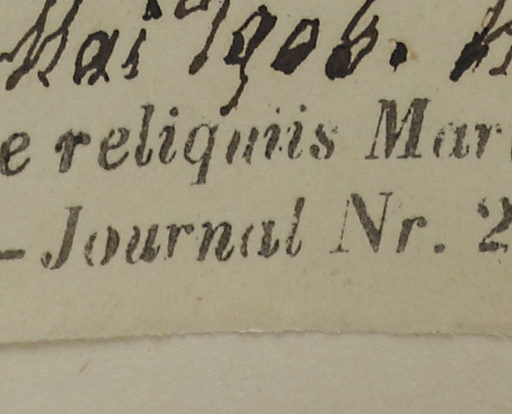 Mai 1906.
e reliquiis Mar
– Journal Nr. 2